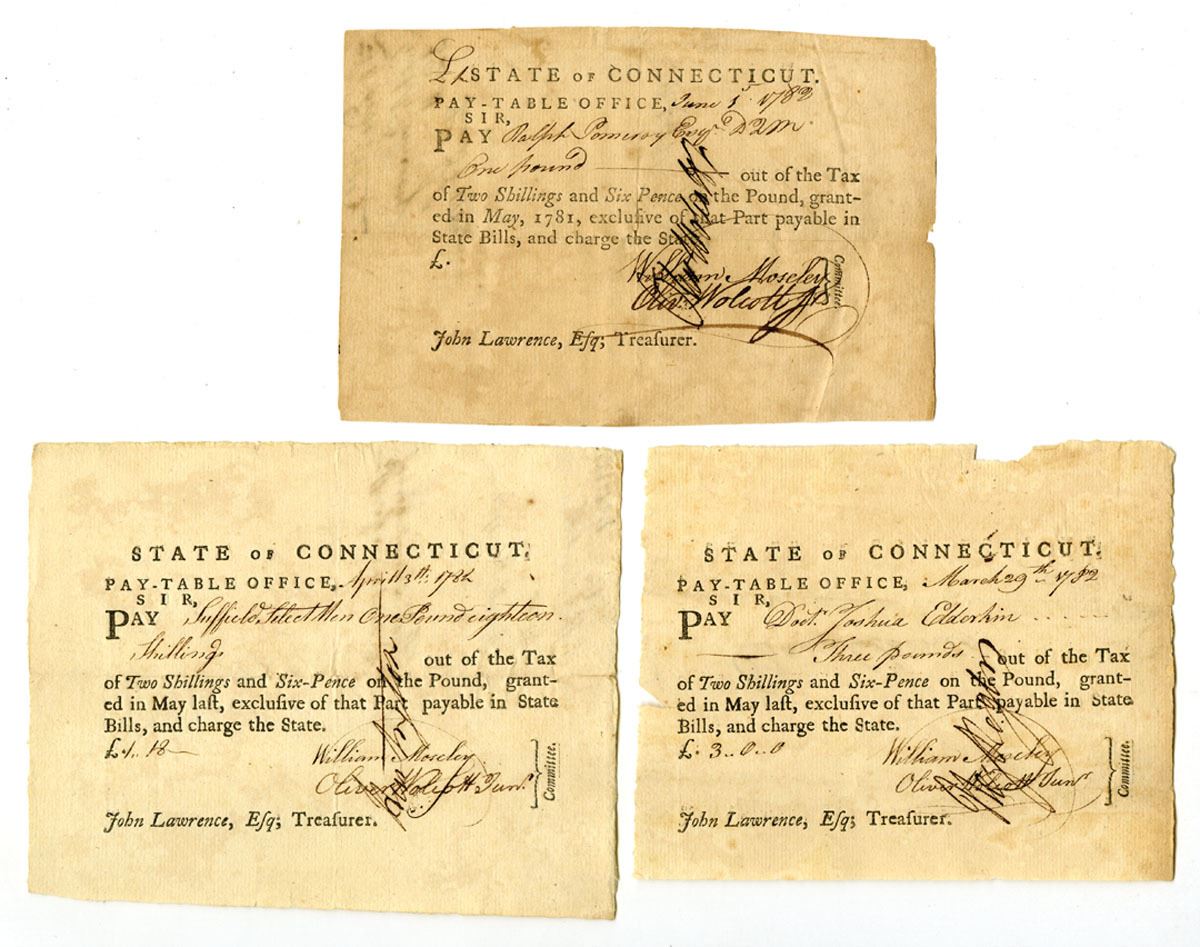 £1 STATE OF CONNECTICUT.
PAY-TABLE OFFICE, June 1st 1782
SIR,
PAY Ralph Pomeroy Esqr. D Q M
One pound out of the Tax
of Two Shillings and Six Pence on the Pound, grant-
ed in May, 1781, exclusive of that Part payable in
State Bills, and charge the State.
£.
William Moseley
Olivr. Wolcott Jr
Committee.
John Lawrence, Esq; Treaſurer.
STATE OF CONNECTICUT.
PAY-TABLE OFFICE, April 13th. 1782
SIR,
PAY Suffield Select Men One Pound eighteen
Shillings out of the Tax
of Two Shillings and Six-Pence on the Pound, grant-
ed in May laſt, excluſive of that Part payable in State
Bills, and charge the State.
£.1..18
William Moseley
Oliver Wolcott Junr.
Committee.
John Lawrence, Eſq; Treaſurer.
STATE OF CONNECTICUT.
PAY-TABLE OFFICE, March 29th 1782
SIR,
PAY Doct. Joshua Elderkin
Three pounds out of the Tax
of Two Shillings and Six-Pence on the Pound, grant-
ed in May laſt, excluſive of that Part payable in State
Bills, and charge the State.
£. 3..0..0
William Moseley
Oliver Wolcott Junr
Committee.
John Lawrence, Eſq; Treaſurer.